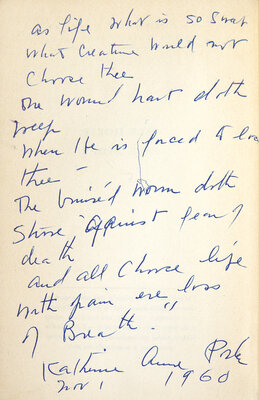 as life what is so sweet
what creature would not
choose thee
The wound hart doth
weep
When He is forced to lose
thee —
The bruis'd worm doth
strive against fear of
death
and all choose life
with pain ere loss
of Breath."
Katherine Anne Porter
Nov 1 1960